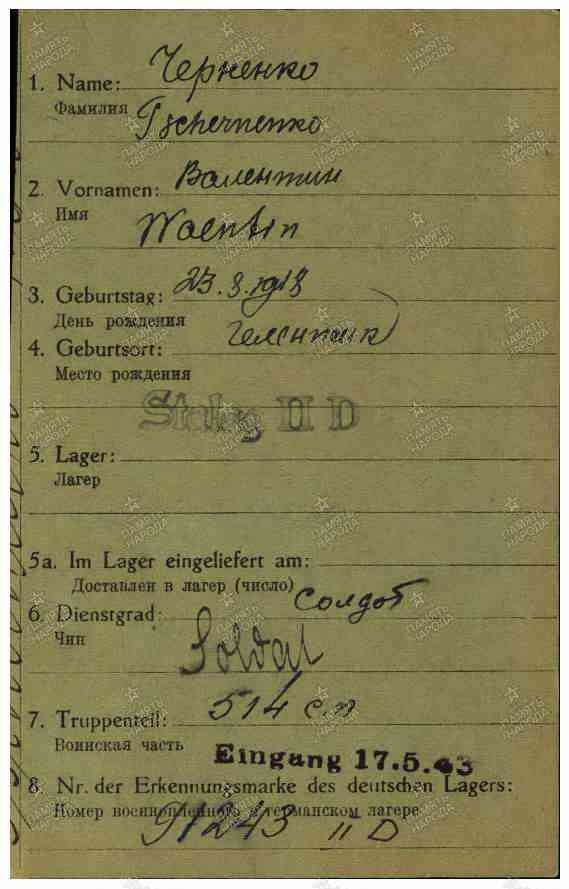 1. Name: Черненко
Фамилия
Tschernenko
2. Vornamen: Валентин
Имя
Walentin
3. Geburtstag: 23.8.1918
День рождения
4. Geburtsort:
Место рождения
Stalag II D
5. Lager:
Лагер
5a. Im Lager eingeliefert am:
Доставлен в лагер (число)
6. Dienstgrad: Солдат
Чин
Soldat
7. Truppenteil: 514 с.п
Воинская часть
Eingang 17.5.43
8. Nr. der Erkennungsmarke des deutschen Lagers:
Номер военнопленного в германском лагере
II D
ПАМЯТЬ НАРОДА